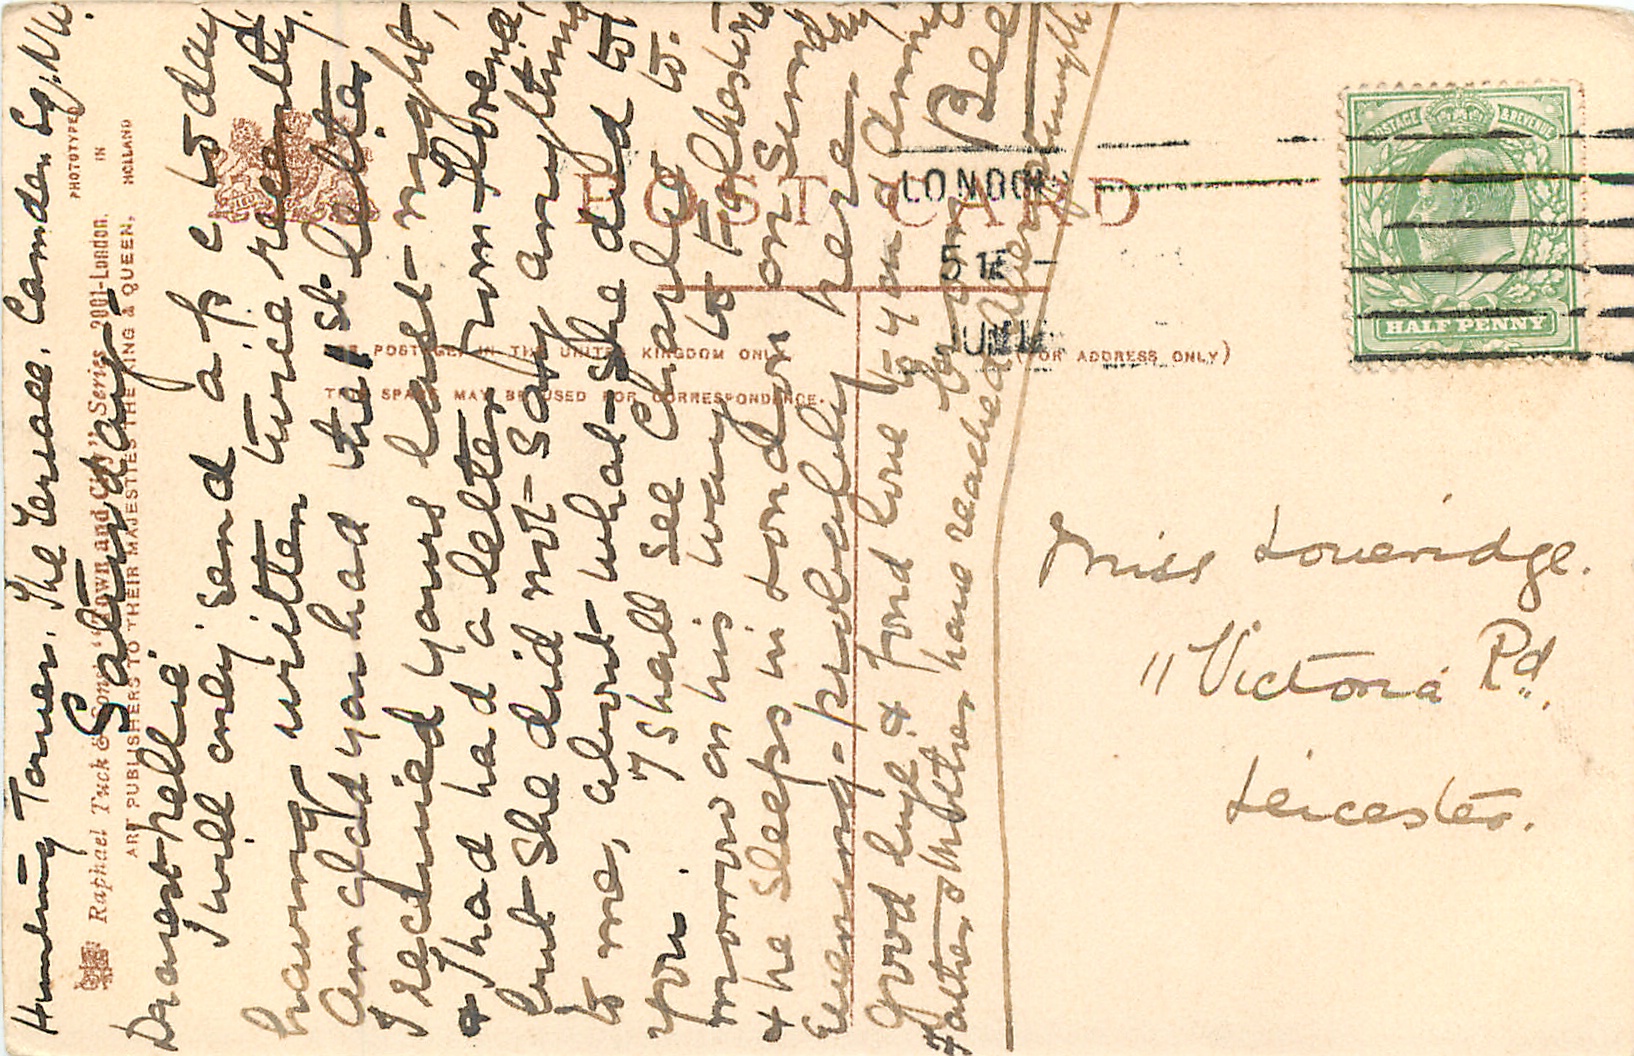 Hunting Tower. The Terrace. Camden Sq. NW.
Saturday
Dearest Nellie
I will only send a p c to day
having written twice recently.
Am glad you had the 1st letter,
I received yours last night,
& I had had a letter from Florence,
but she did not say anything
to me, about what she did to
you. I shall see Charlie to-
morrow on his way to Folkestone
& he sleeps in London on Sunday
evening - probably here.
Good bye & fond love to you
Father & Mother have reached
Bee
POST CARD
Raphael Tuck & Sons' "Town and City" Series 2001-London.
ART PUBLISHERS TO THEIR MAJESTIES THE KING & QUEEN.
PHOTOTYPED
IN
HOLLAND
POSTAGE IN THE UNITED KINGDOM ONLY
THIS SPACE MAY BE USED FOR CORRESPONDENCE.
(FOR ADDRESS ONLY)
LONDON
5 15
JUN
POSTAGE & REVENUE
HALF PENNY
Miss Loveridge.
11 Victoria Rd.
Leicester.